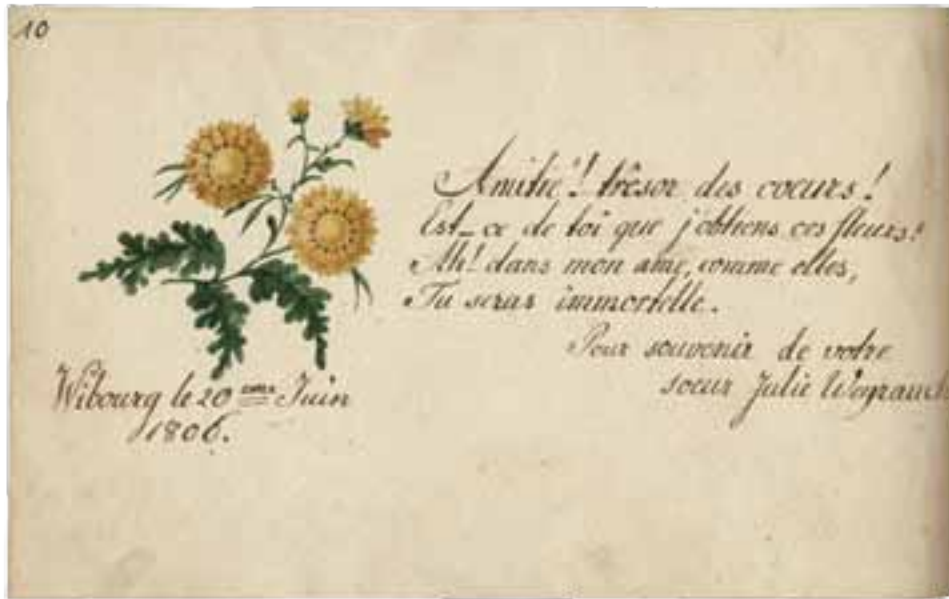 10
Amitié! trêsor des coeurs!
Est-ce de toi que j'obtiens ces fleurs!
Ah! dans mon ame, comme elles,
Tu seras immortelle.
Pour souvenir de votre
soeur Julie
Wibourg le 20 eme Juin
1806.